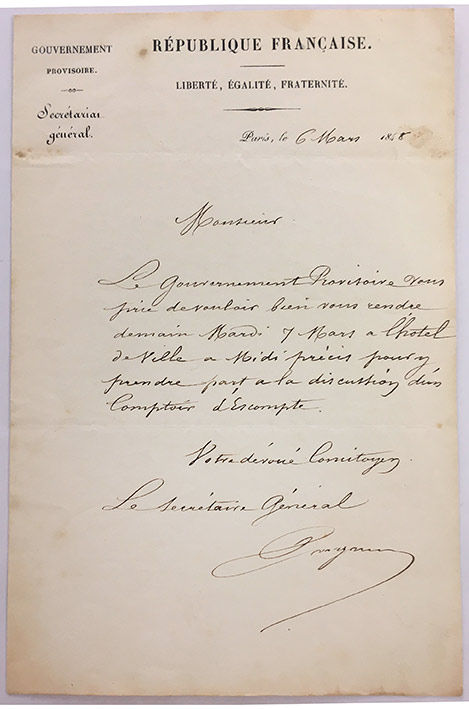 GOUVERNEMENT
PROVISOIRE.
Secrétariat
général.
RÉPUBLIQUE FRANÇAISE.
LIBERTÉ, ÉGALITÉ, FRATERNITÉ.
Paris, le 6 Mars 1848
Monsieur
Le Gouvernement Provisoire vous
prie de vouloir bien vous rendre
demain Mardi 7 Mars a l'hotel
de Ville a Midi précis pour y
prendre part a la discussion d'un
Comptoir d'Escompte.
Votre dévoué Concitoyen
Le Secrétaire Général